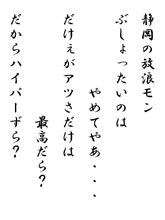 静岡の放浪モン
ぶしょったいのは
やめてやあ・・・
だけぇがアツさだけは
最高だら？
だからハイパーずら？